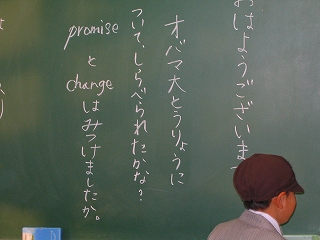 おはようございま
オバマ大とうりょうに
ついて、しらべられたかな？
promise と change はみつけましたか。